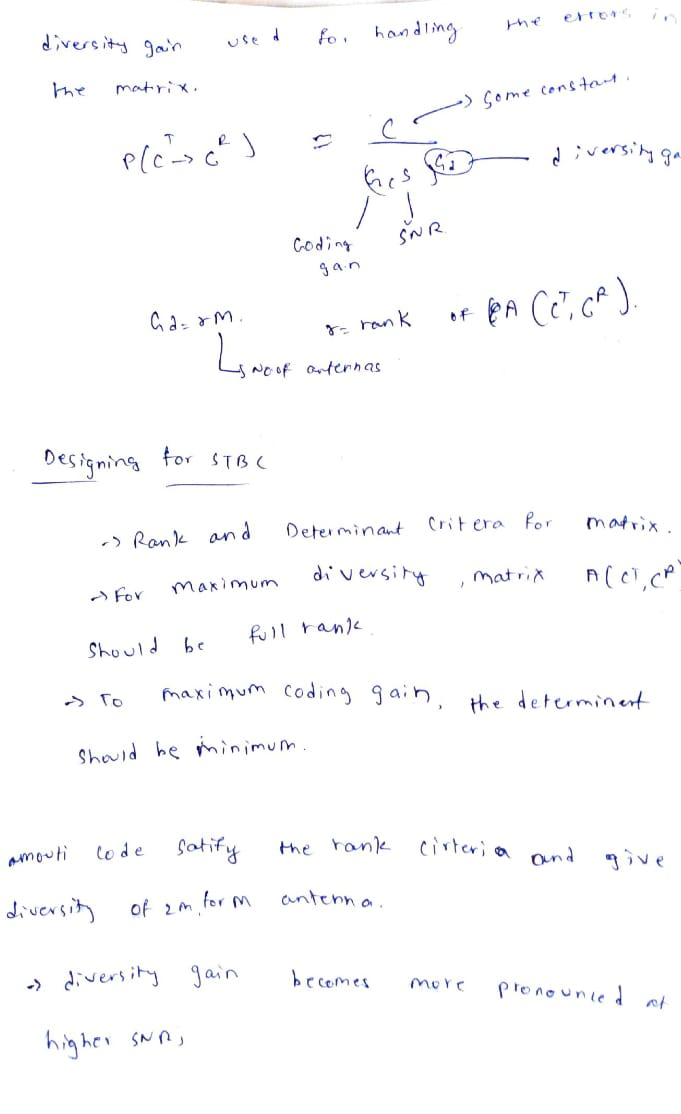 diversity gain used for handling the errors in
the matrix.
P(C^T → C^R) = C / (G_c S)^{G_d}
→ Some constant.
diversity ga
Coding gain
SNR
G_d = rM. r = rank of A(C^T, C^R).
↳ No of antennas
Designing for STBC
→ Rank and Determinant Critera for matrix.
→ For maximum diversity, matrix A(C^T, C^R
Should be full rank.
→ To maximum coding gain, the determinent
Should be minimum.
amouti Code Satify the rank cirteria and give
diversity of 2m, for M antenna.
→ diversity gain becomes more pronounced at
higher SNR,